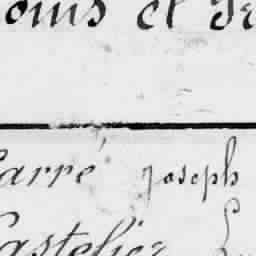 oms et Pr
Carré Joseph
Castelier